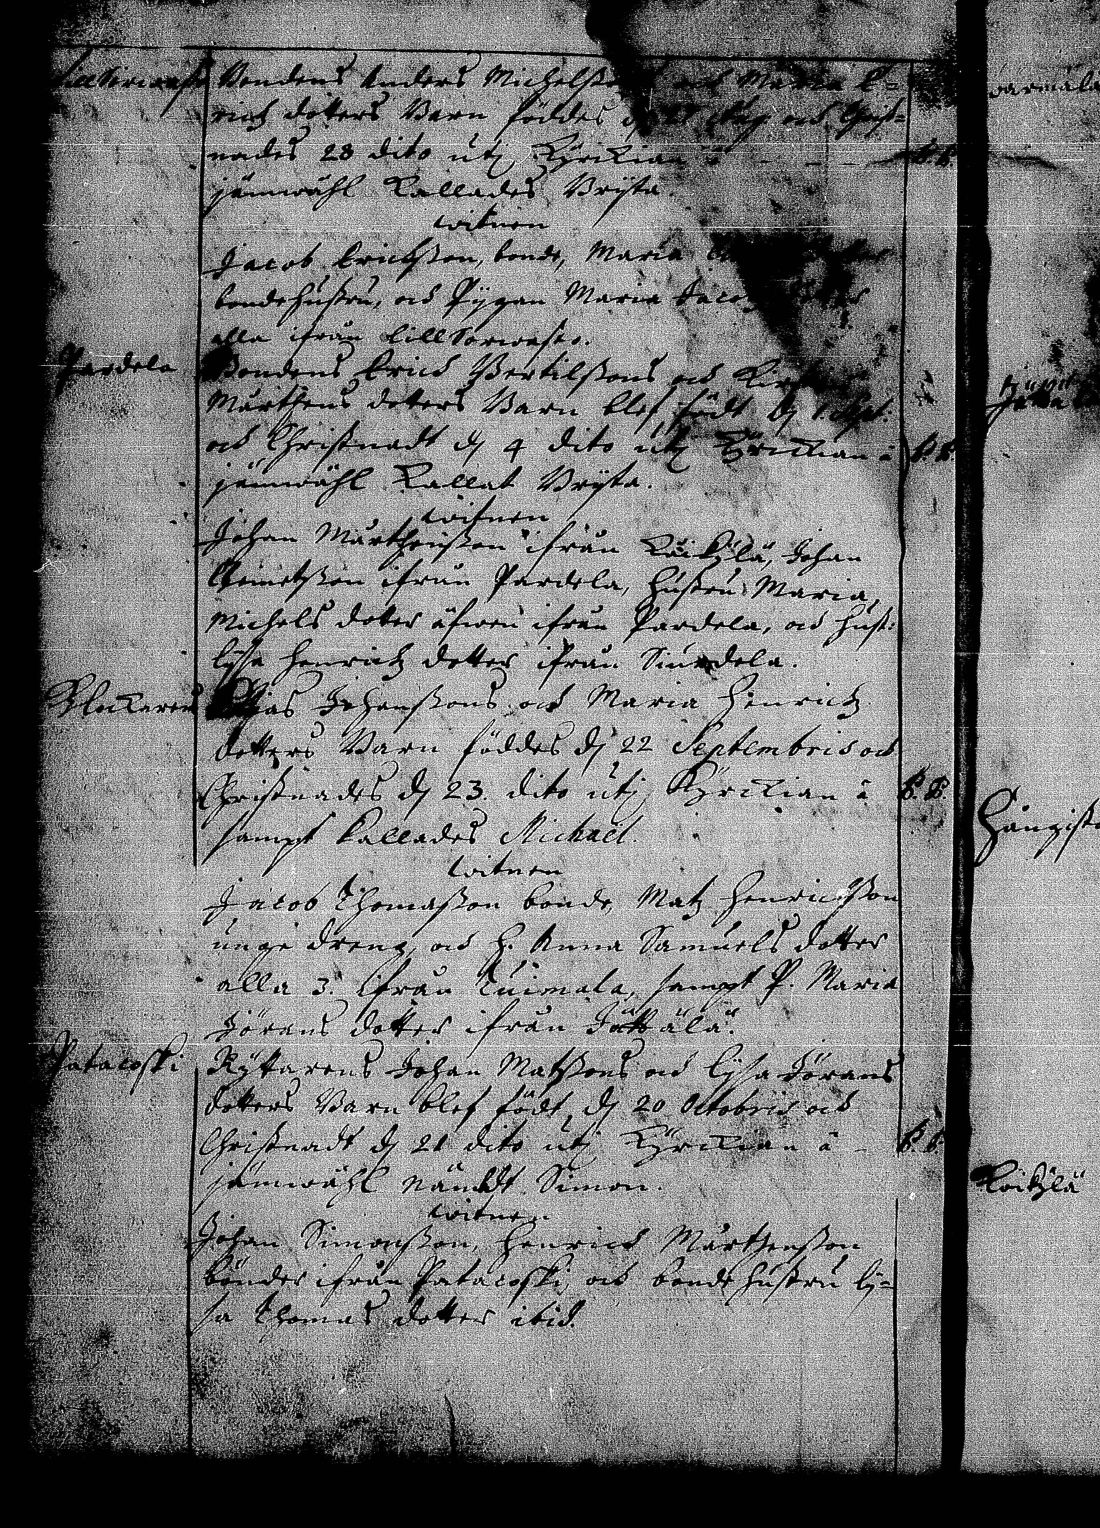 Bondens Anders Michelsson och Maria E=
richz doters Barn föddes d 27 Aug och Christ=
nades 28 dito utj Kyrckian
jämwähl Kallades Brijta.
witnen
Jacob Erichsson, bonde, Maria
bondehustru, och Pijgan Maria Jacobz doter
alla ifrån Lill Sorwasto.
Pardela
Bondens Erich Bertilssons och
Mårthens doters Barn blef födt d 1 Sept.
och Christnadt d 4 dito utj Kyrckian å
jämwähl Kallat Brijta.
witnen
Johan Mårthensson ifrån Köikylä, Johan
Clemetsson ifrån Pardela, hustru Maria
Michels doter äfwen ifrån Pardela, och hust:
Lijsa Henrichz dotter ifrån
Klockaren
Johanssons och Maria Henrichz
dotters Barn föddes d 22 Septembris och
Christnades d 23. dito utj Kyrckian å
sampt kallades Michael.
witnen
Jacob Thomasson bonde, Matz Henrichsson
unge dreng, och H. Anna Samuels dotter
alla 3. ifrån Tuimala, sampt P. Maria
Jörans dotter ifrån
Patacoski
Ryttarens Johan Matssons och Lijsa Jörans
doters Barn blef födt d 20 Octobris och
Christnadt d 21 dito utj Kyrckian å
jämwähl nämdt Simon.
witnen
Johan Simonsson, Henrich Mårthensson
bönder ifrån Patacoski, och bondehustru Lij=
sa Thomas dotter ibid.
Köikylä